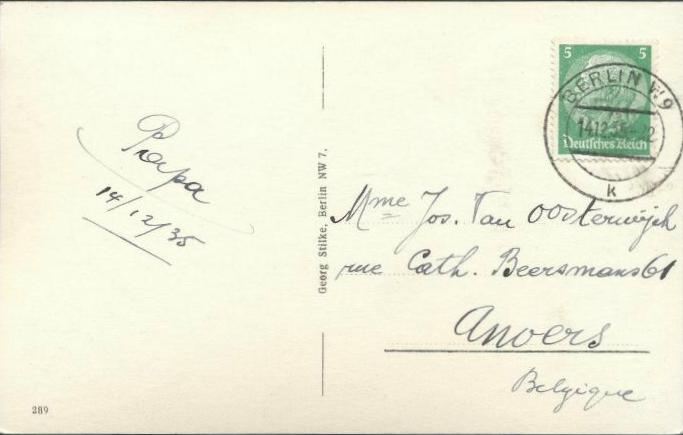 Papa
14/12/35
289
Georg Stilke, Berlin NW 7.
5 5
Deutsches Reich
BERLIN W9
14.12.35 - 12
k
Mme Jos. Van Oosterwijck
rue Cath. Beersmans 61
Anvers
Belgique